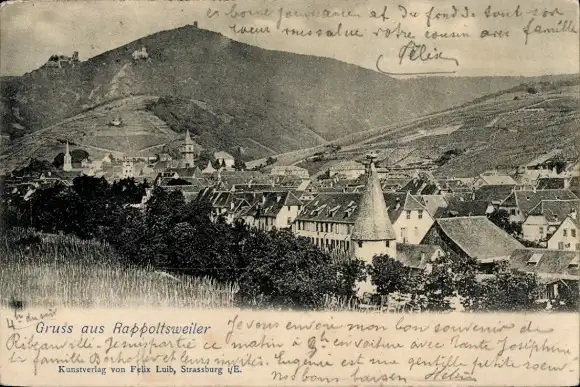 en bonne jouissance et du fond de tout son
coeur vous salue votre cousin avec famille
Félix
Gruss aus Rappoltsweiler
Kunstverlag von Felix Luib, Strassburg i/E.
Je vous envoie mon bon souvenir de
Ribeauvillé. Je suis partie ce matin à en voiture avec Tante Joséphine
la famille et leurs Eugénie est une gentille petite soeur.